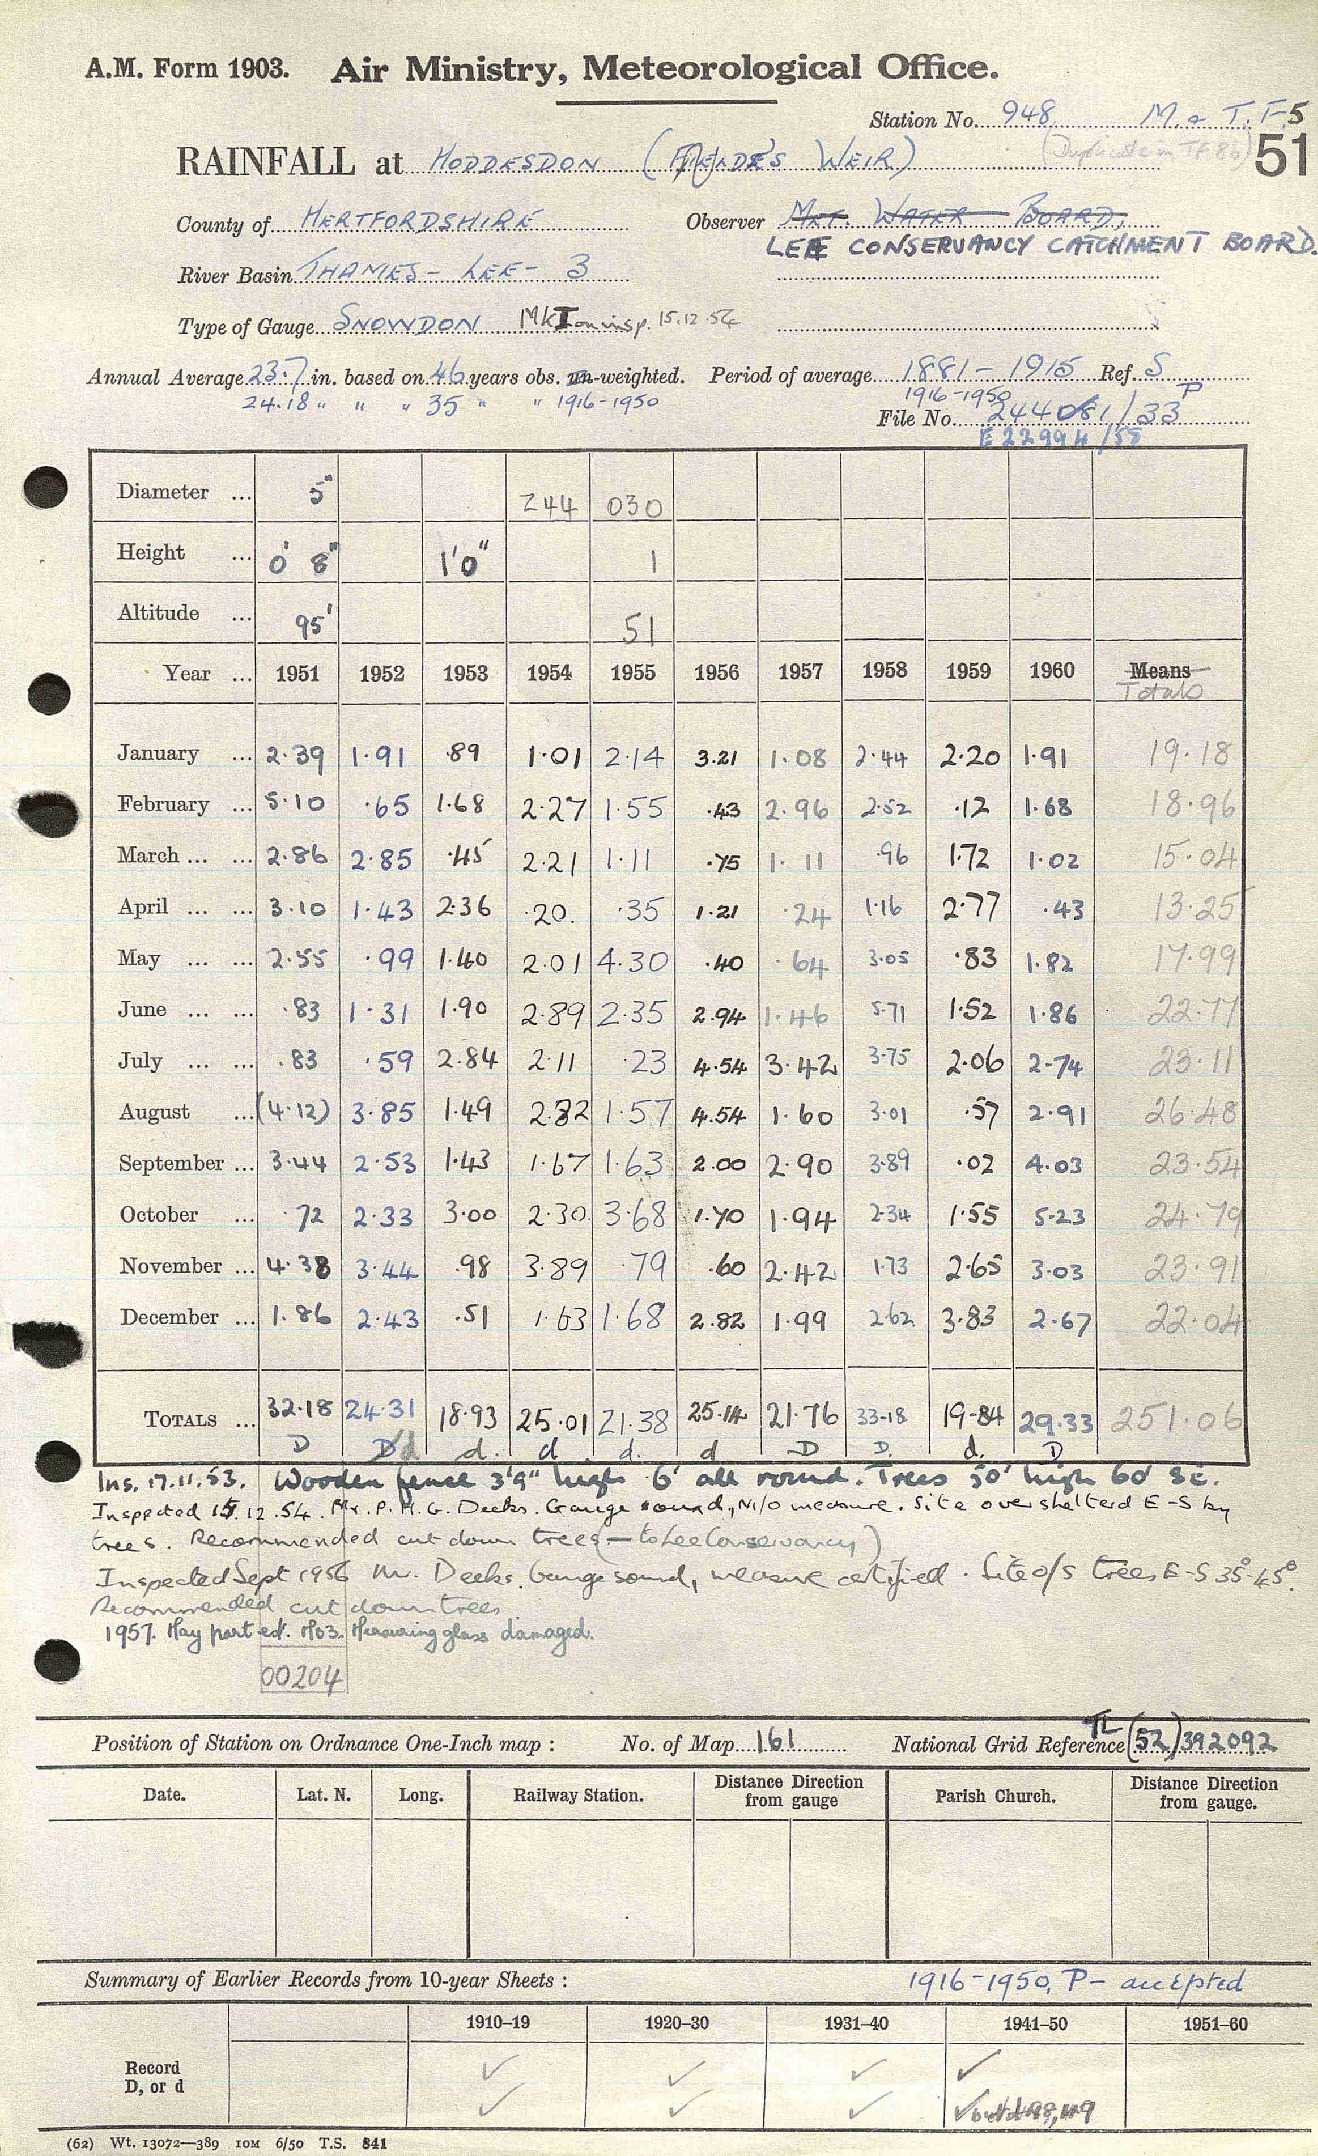 A.M. Form 1903. Air Ministry, Meteorological Office.
Station No. 948 M. & T. F. 5
RAINFALL at HODDESDON ( WEIR) (Duplicate in TF 86) 51
County of HERTFORDSHIRE Observer MET. WATER BOARD,
LEE CONSERVANCY CATCHMENT BOARD.
River Basin THAMES - LEE - 3
Type of Gauge SNOWDON Mk I on insp. 15.12.54
Annual Average 23.7 in. based on 46 years obs. un-weighted. Period of average 1881 - 1915 Ref. S
24.18 " " " 35 " " 1916-1950 1916-1950 P
File No. /33
E 22994/55
Diameter ... 5" 244 030
Height ... 0' 8" 1'0" 1
Altitude ... 95' 51
Year ... 1951 1952 1953 1954 1955 1956 1957 1958 1959 1960 Means
Totals
January ... 2.39 1.91 .89 1.01 2.14 3.21 1.08 2.44 2.20 1.91 19.18
February ... 5.10 .65 1.68 2.27 1.55 .43 2.96 2.52 .12 1.68 18.96
March ... ... 2.86 2.85 .45 2.21 1.11 .75 1.11 .96 1.72 1.02 15.04
April ... ... 3.10 1.43 2.36 .20 .35 1.21 .24 1.16 2.77 .43 13.25
May ... ... 2.55 .99 1.40 2.01 4.30 .40 .64 3.05 .83 1.82 17.99
June ... ... .83 1.31 1.90 2.89 2.35 2.94 1.46 5.71 1.52 1.86 22.77
July ... ... .83 .59 2.84 2.11 .23 4.54 3.42 3.75 2.06 2.74 23.11
August ... (4.12) 3.85 1.49 2.82 1.57 4.54 1.60 3.01 .57 2.91 26.48
September ... 3.44 2.53 1.43 1.67 1.63 2.00 2.90 3.89 .02 4.03 23.54
October ... .72 2.33 3.00 2.30 3.68 1.70 1.94 2.34 1.55 5.23 24.79
November ... 4.38 3.44 .98 3.89 .79 .60 2.42 1.73 2.65 3.03 23.91
December ... 1.86 2.43 .51 1.63 1.68 2.82 1.99 2.62 3.83 2.67 22.04
TOTALS ... 32.18 24.31 18.93 25.01 21.38 25.14 21.76 33.18 19.84 29.33 251.06
D D d d. d d. d D D. d. D
Ins. 17.11.53. Wooden fence 3'9" high 6' all round. Trees 50' high 60' SE.
Inspected 15.12.54. Mr. P.H.G. Deeks. Gauge sound, N/o measure. Site over sheltered E-S by
trees. Recommended cut down trees (— to Lee Conservancy)
Inspected Sept 1956 Mr. Deeks. Gauge sound, measure certified. Site o/s trees E-S 35°-45°.
Recommended cut down trees
1957. May part est. Measuring glass damaged.
00204
Position of Station on Ordnance One-Inch map : No. of Map 161 National Grid Reference TL (52) 392092
Date. Lat. N. Long. Railway Station. Distance Direction from gauge Parish Church. Distance Direction from gauge.
Summary of Earlier Records from 10-year Sheets : 1916-1950, P- accepted
1910–19 1920–30 1931–40 1941–50 1951–60
Record ✓ ✓ ✓ ✓
D, or d ✓ ✓ ✓ ✓
(62) Wt. 13072—389 10M 6/50 T.S. 841